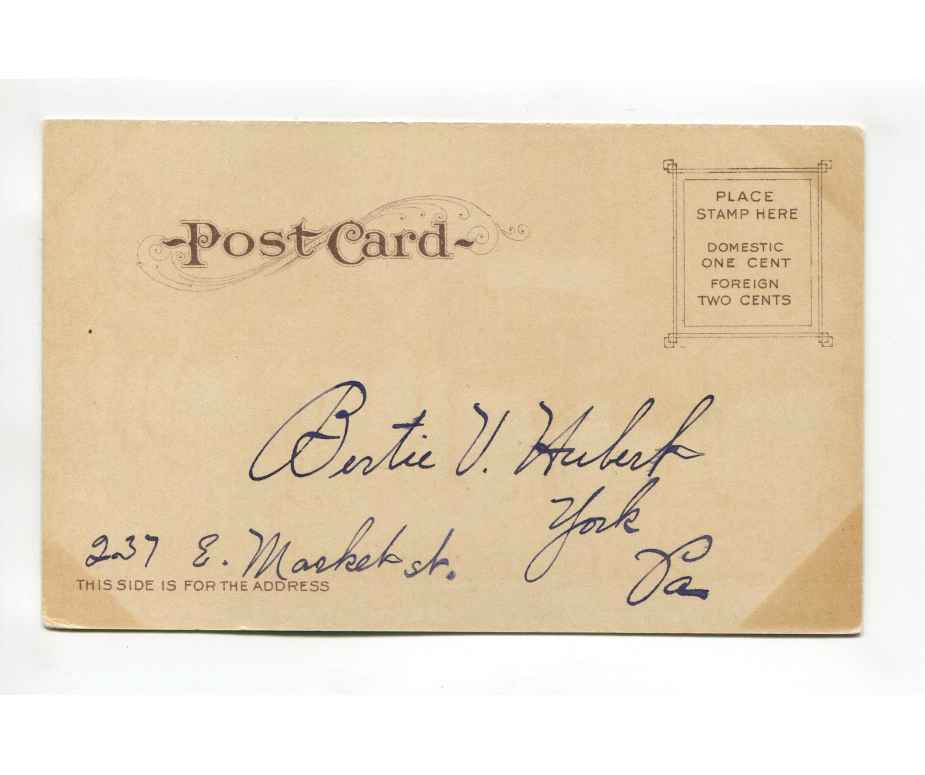 Post Card
PLACE
STAMP HERE
DOMESTIC
ONE CENT
FOREIGN
TWO CENTS
Bertie V. Hubert
York
Pa
237 E. Market st.
THIS SIDE IS FOR THE ADDRESS